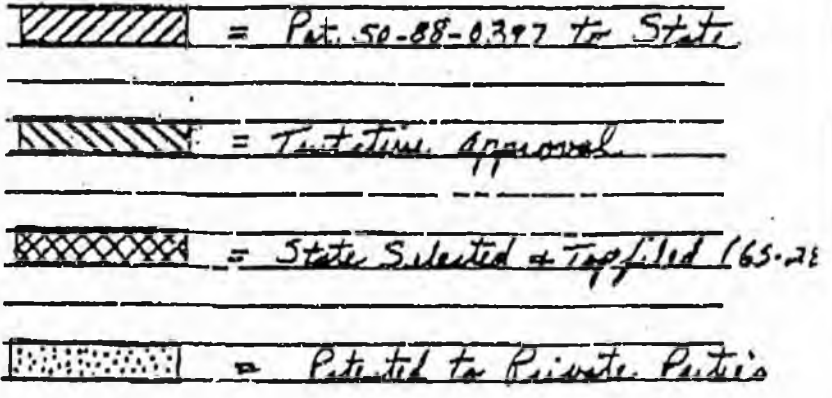 = Pat. 50-88-0397 to State
= Tentative Approval
= State Selected & Topfiled (GS-2
= Patented to Private Parties